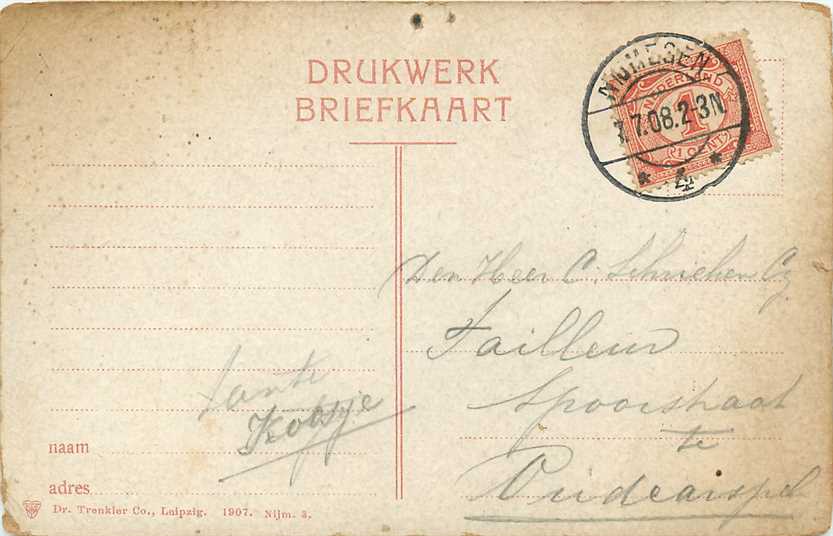 DRUKWERK
BRIEFKAART
NIJMEGEN
7.08.2-3N
4
NEDERLAND
1
1 CENT
Den Heer C. Schrieken Cz
Tailleur
Spoorstraat
te
Oudcarspel
tante
Kobsje
naam
adres
Dr. Trenkler Co., Leipzig. 1907. Nijm. 3.